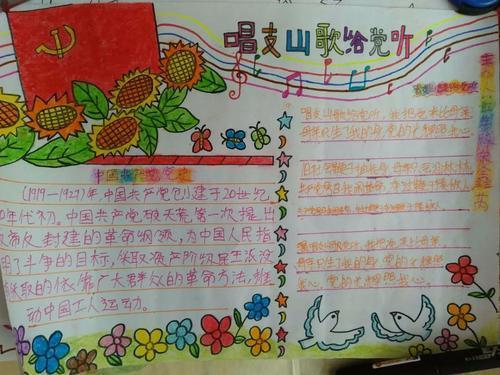 唱支山歌给党听
中国
(1919—1927)年,中国共产党创建于20世纪
20年代初。中国共产党破天荒第一次提出
反封建的革命纲领,为中国人民指
明了斗争的目标,
的依靠广大群众的革命方法,推
动中国工人运动。
唱支山歌给党听,我把党来比母亲
母亲只生了我的身,党的光辉照我心。
旧社会鞭子抽我身,母亲只会泪淋淋
共产党号召我闹革命,夺过鞭子揍敌人
唱支山歌给党听,我把党来比母亲,
母亲只生了我的身,党的光辉照
我心,党的光辉照我心。